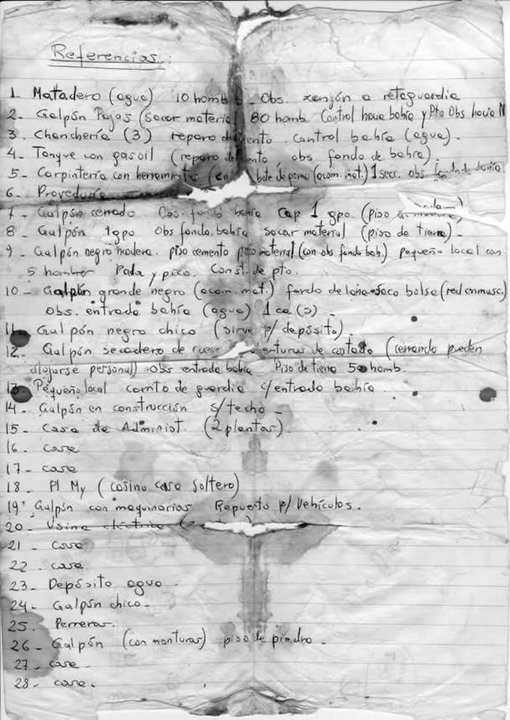 Referencias:
1- Matadero (agua) 10 homb Obs. zanjón a retaguardia
2- Galpón Pajas (Sacar materia 80 homb Control hacia bahía y Pto Obs hacia N
3- Chanchería (3) reparo to control bahía (agua).
4- Tanque con gasoil (reparo to, obs fondo de bahía)
5- Carpintería con herramienta (acom. mat.) 1 secc. obs
6-
7- Galpón cerrado Obs. fondo bahía Cap 1 gpo. (piso
8- Galpón 1 gpo Obs fondo. bahía sacar material (piso de tierra)-
9- Galpón negro madera. piso cemento material (con obs fondo bah) Pequeño local con
5 hombres Pala y pico. Const. de pto.
10- Galpón grande negro (acom. mat.) fardo de lana - saco bolsa (red enmasc.)
Obs. entrada bahía (agua) 1
11- Galpón negro chico (sirve p/ depósito).
12- Galpón secadero de de costado (cerrando pueden
alojarse personal) obs entrada bahía Piso de tierra 50 homb.
13- Pequeño local de guardia c/entrada bahía
14- Galpón en construcción s/techo -
15- Casa de Administ. (2 plantas).
16- casa
17- casa
18- Pl My (casino casa soltero)
19- Galpón con maquinarias Repuesto p/ Vehículos.
20- Usina eléctrica
21- Casa
22- casa
23- Depósito agua -
24- Galpón chico -
25- Perreras.
26- Galpón (con monturas) piso de piedra -
27- casa -
28- casa -